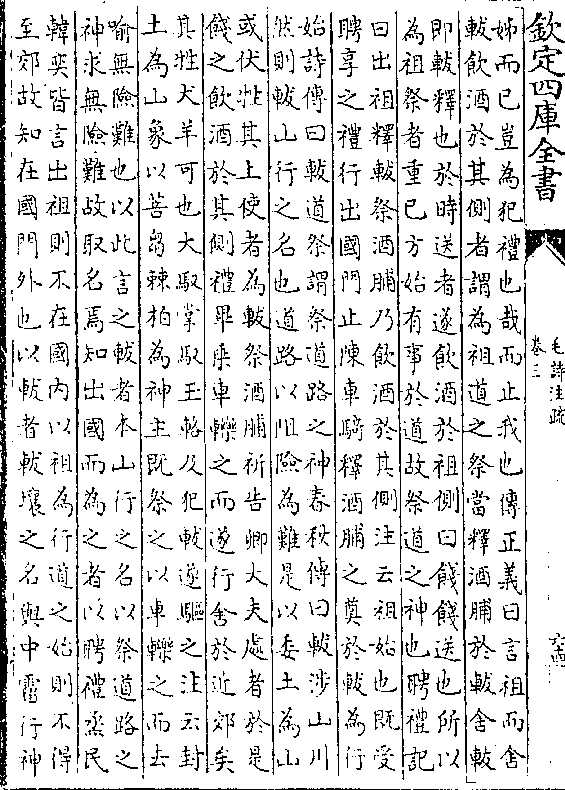 欽定四庫全書
毛詩注疏
卷三
六十四
姊而已豈為犯禮也哉而止我也傳正義曰言祖而舍
軷飲酒於其側者謂為祖道之祭當釋酒脯於軷舍軷
即軷釋也於時送者遂飲酒於祖側曰餞餞送也所以
為祖祭者重已方始有事於道故祭道之神也聘禮記
曰出祖釋軷祭酒脯乃飲酒於其側注云祖始也既受
聘享之禮行出國門止陳車騎釋酒脯之奠於軷為行
始詩傳曰軷道祭謂祭道路之神春秋傳曰軷涉山川
然則軷山行之名也道路以阻險為難是以委土為山
或伏牲其上使者為軷祭酒脯祈告卿大夫處者於是
餞之飲酒於其側禮畢乗車轢之而遂行舍於近郊矣
其牲犬羊可也大馭掌馭王輅及犯軷遂驅之注云封
土為山象以菩芻棘柏為神主既祭之以車轢之而去
喻無險難也以此言之軷者本山行之名以祭道路之
神求無險難故取名焉知出國而為之者以聘禮烝民
韓奕皆言出祖則不在國内以祖為行道之始則不得
至郊故知在國門外也以軷者軷壤之名與中霤行神